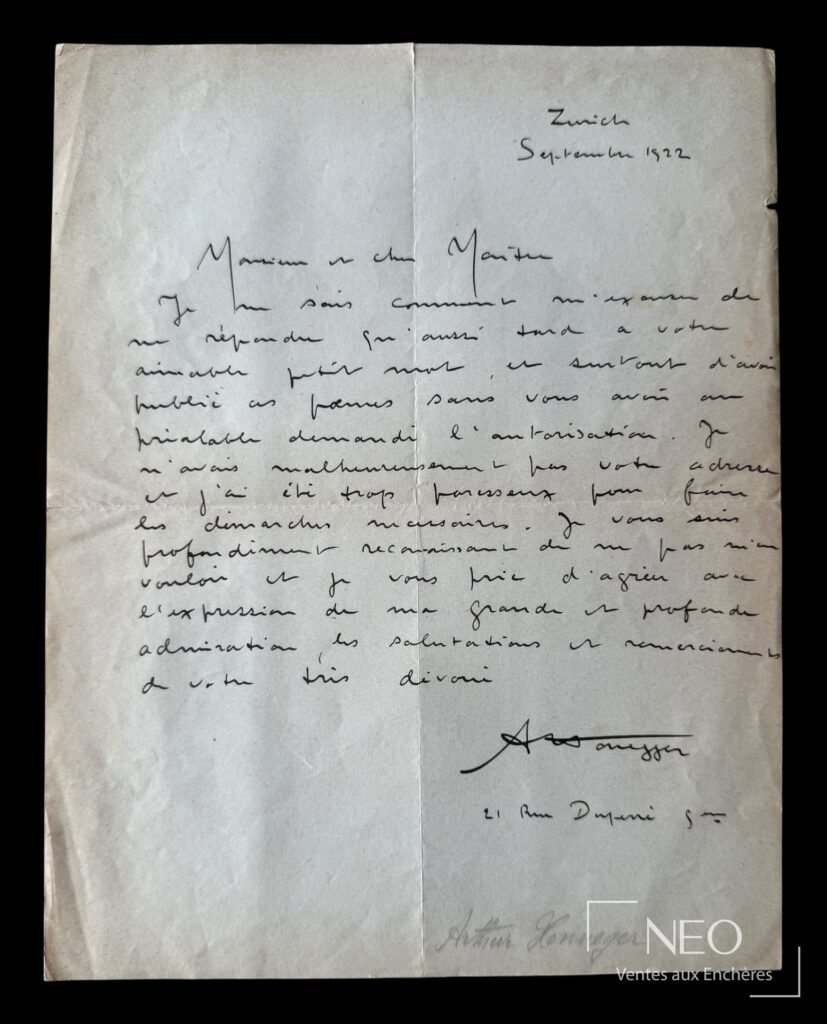 Zurich
Septembre 1922
Monsieur et cher Maître
Je ne sais comment m'excuser de
ne répondre qu'aussi tard a votre
aimable petit mot, et surtout d'avoir
publié ces poèmes sans vous avoir au
préalable demandé l'autorisation. Je
n'avais malheureusement pas votre adresse
et j'ai été trop paresseux pour faire
les démarches necessaires. Je vous suis
profondément reconaissant de ne pas m'en
vouloir et je vous prie d'agréer avec
l'expression de ma grande et profonde
admiration, les salutations et remerciements
de votre très dévoué
AHonegger
21 Rue Duperré 9em
Arthur Honneger
NEO
Ventes aux Enchères